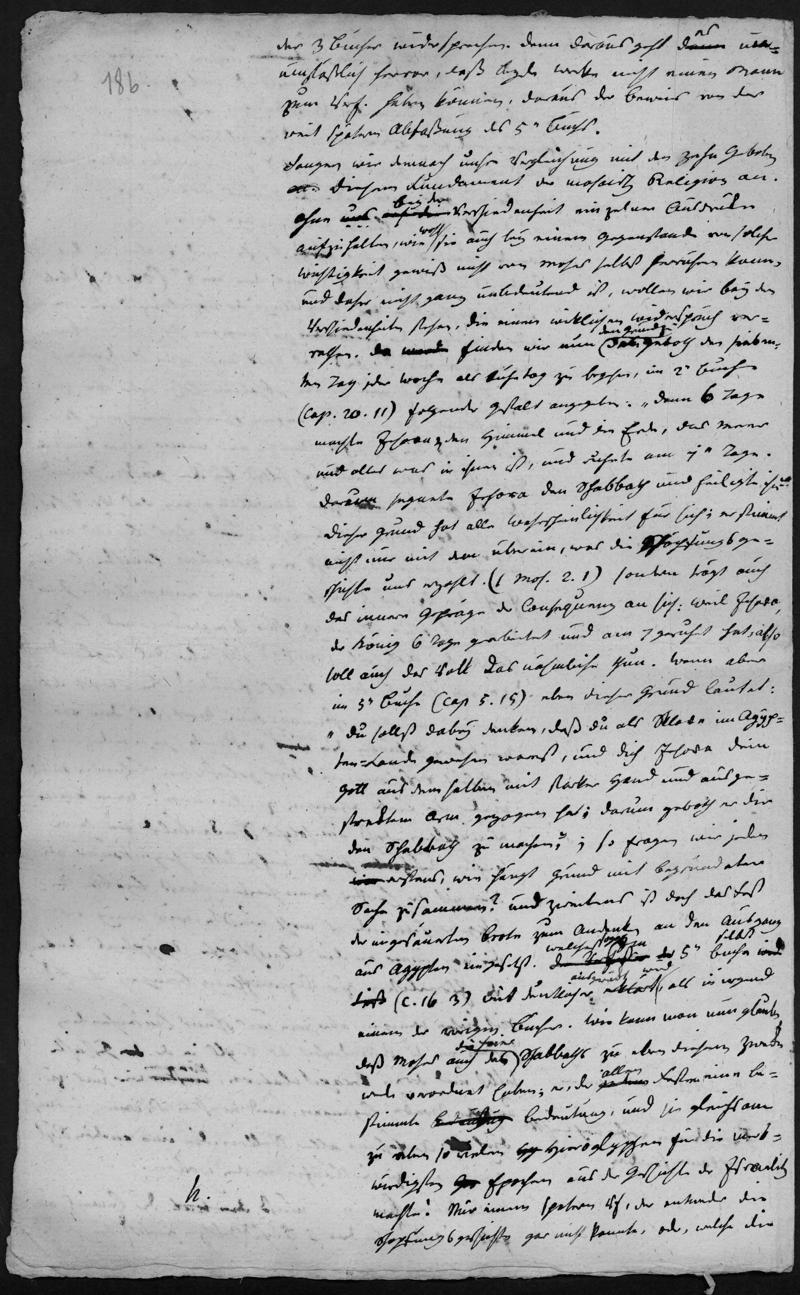 186.
der 3 Bücher widersprechen. denn daraus geht es un-
umstößlich hervor, daß beyde Werke nicht einen Mann
zum Verf. haben können, daraus der Beweis von der
weit spätern Abfaßung des 5n Buchs.
Fangen wir demnach unsre Vergleichung mit den zehn Geboten
diesem Fundament der mosaisch Religion an.
ohne uns bey der Verschiedenheit einzelner Ausdrücke
aufzuhalten, wie wohl sie auch bey einem Gegenstande von solcher
Wichtigkeit gewiß nicht von Moses selbst herrühren kann,
und daher nicht ganz unbedeutend ist, wollen wir bey den
Verschiedenheiten stehen, die einen wirklichen Widerspruch ver-
rathen. finden wir nun den Grund das Geboth den sieben-
ten Tag jeder Woche als Ruhetag zu begehen, im 2n Buche
(Cap. 20. 11) folgender Gestalt angegeben. „denn 6 Tage
machte Jehova den Himmel und die Erde, das Meer
und alles was in ihnen ist, und ruhete am 7n Tage.
darum segnete Jehova den Schabbath und heiligte ihn“
dieser Grund hat alle Wahrscheinlichkeit für sich; er stimmt
nicht nur mit dem überein, was die Schöpfungsge-
schichte uns erzählt. (1 Mos. 2. 1) sondern trägt auch
das innere Gepräge der Consequenz an sich: weil Jehova,
der König 6 Tage gearbeitet und am 7 geruhet hat, also
soll auch das Volk das nähmliche thun. Wenn aber
im 5n Buche (Cap 5. 15) eben dieser Grund lautet:
„du sollst dabey denken, daß du als Sklave im Ägyp-
ten-Lande gewesen warest, und dich Jehova dein
Gott aus demselben mit starker Hand und ausge-
strektem Arm, gezogen hat; darum geboth er dir
den Schabbath zu machen“; so fragen wir jeden
erstens, wie hängt Grund mit begründeten
Sache zusammen? und zweitens ist doch das Fest
der ungesäuerten Brote zum Andenken an den Ausgang
aus Ägypten eingesetzt. welches im 5n Buche selbst
(C. 16 3) weit deutlicher ausgedrückt wird, als in irgend
einem der vorigen Bücher. Wie kann man nun glauben
daß Moses auch die Feier des Schabbaths zu eben diesem Zwecke
werde verordnet haben; er, der allen Festen eine be-
stimmte Bedeutung, und sie gleichsam
zu eben so vielen Hieroglyphen für die merk-
würdigsten Epochen aus der Geschichte der Israeliten
machte! Nur einem spätern Vf, der entweder die
Schöpfungsgeschichte gar nicht kannte, oder, welche die
h.